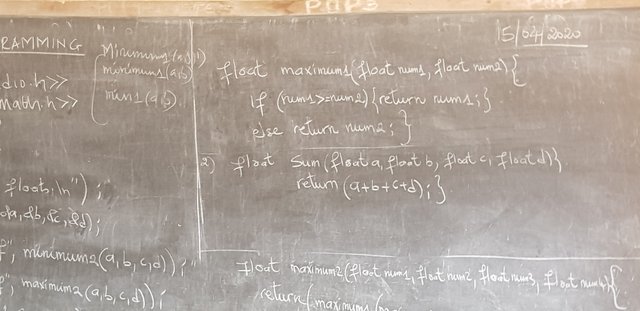 POP3
RAMMING
dio.h>>
Math.h>>
floats \n");
&a, &b, &c, &d);
f", minimum2(a,b,c,d));
f", maximum2(a,b,c,d));
minimum1(a,b)
min1(a,b).
15/04/2020
float maximum1(float num1, float num2){
if (num1>=num2){return num1;}
else return num2; }
2) float Sum(float a, float b, float c, float d){
return(a+b+c+d); }
float maximum2(float num1, float num2, float num3, float num4){
return(maximum1(